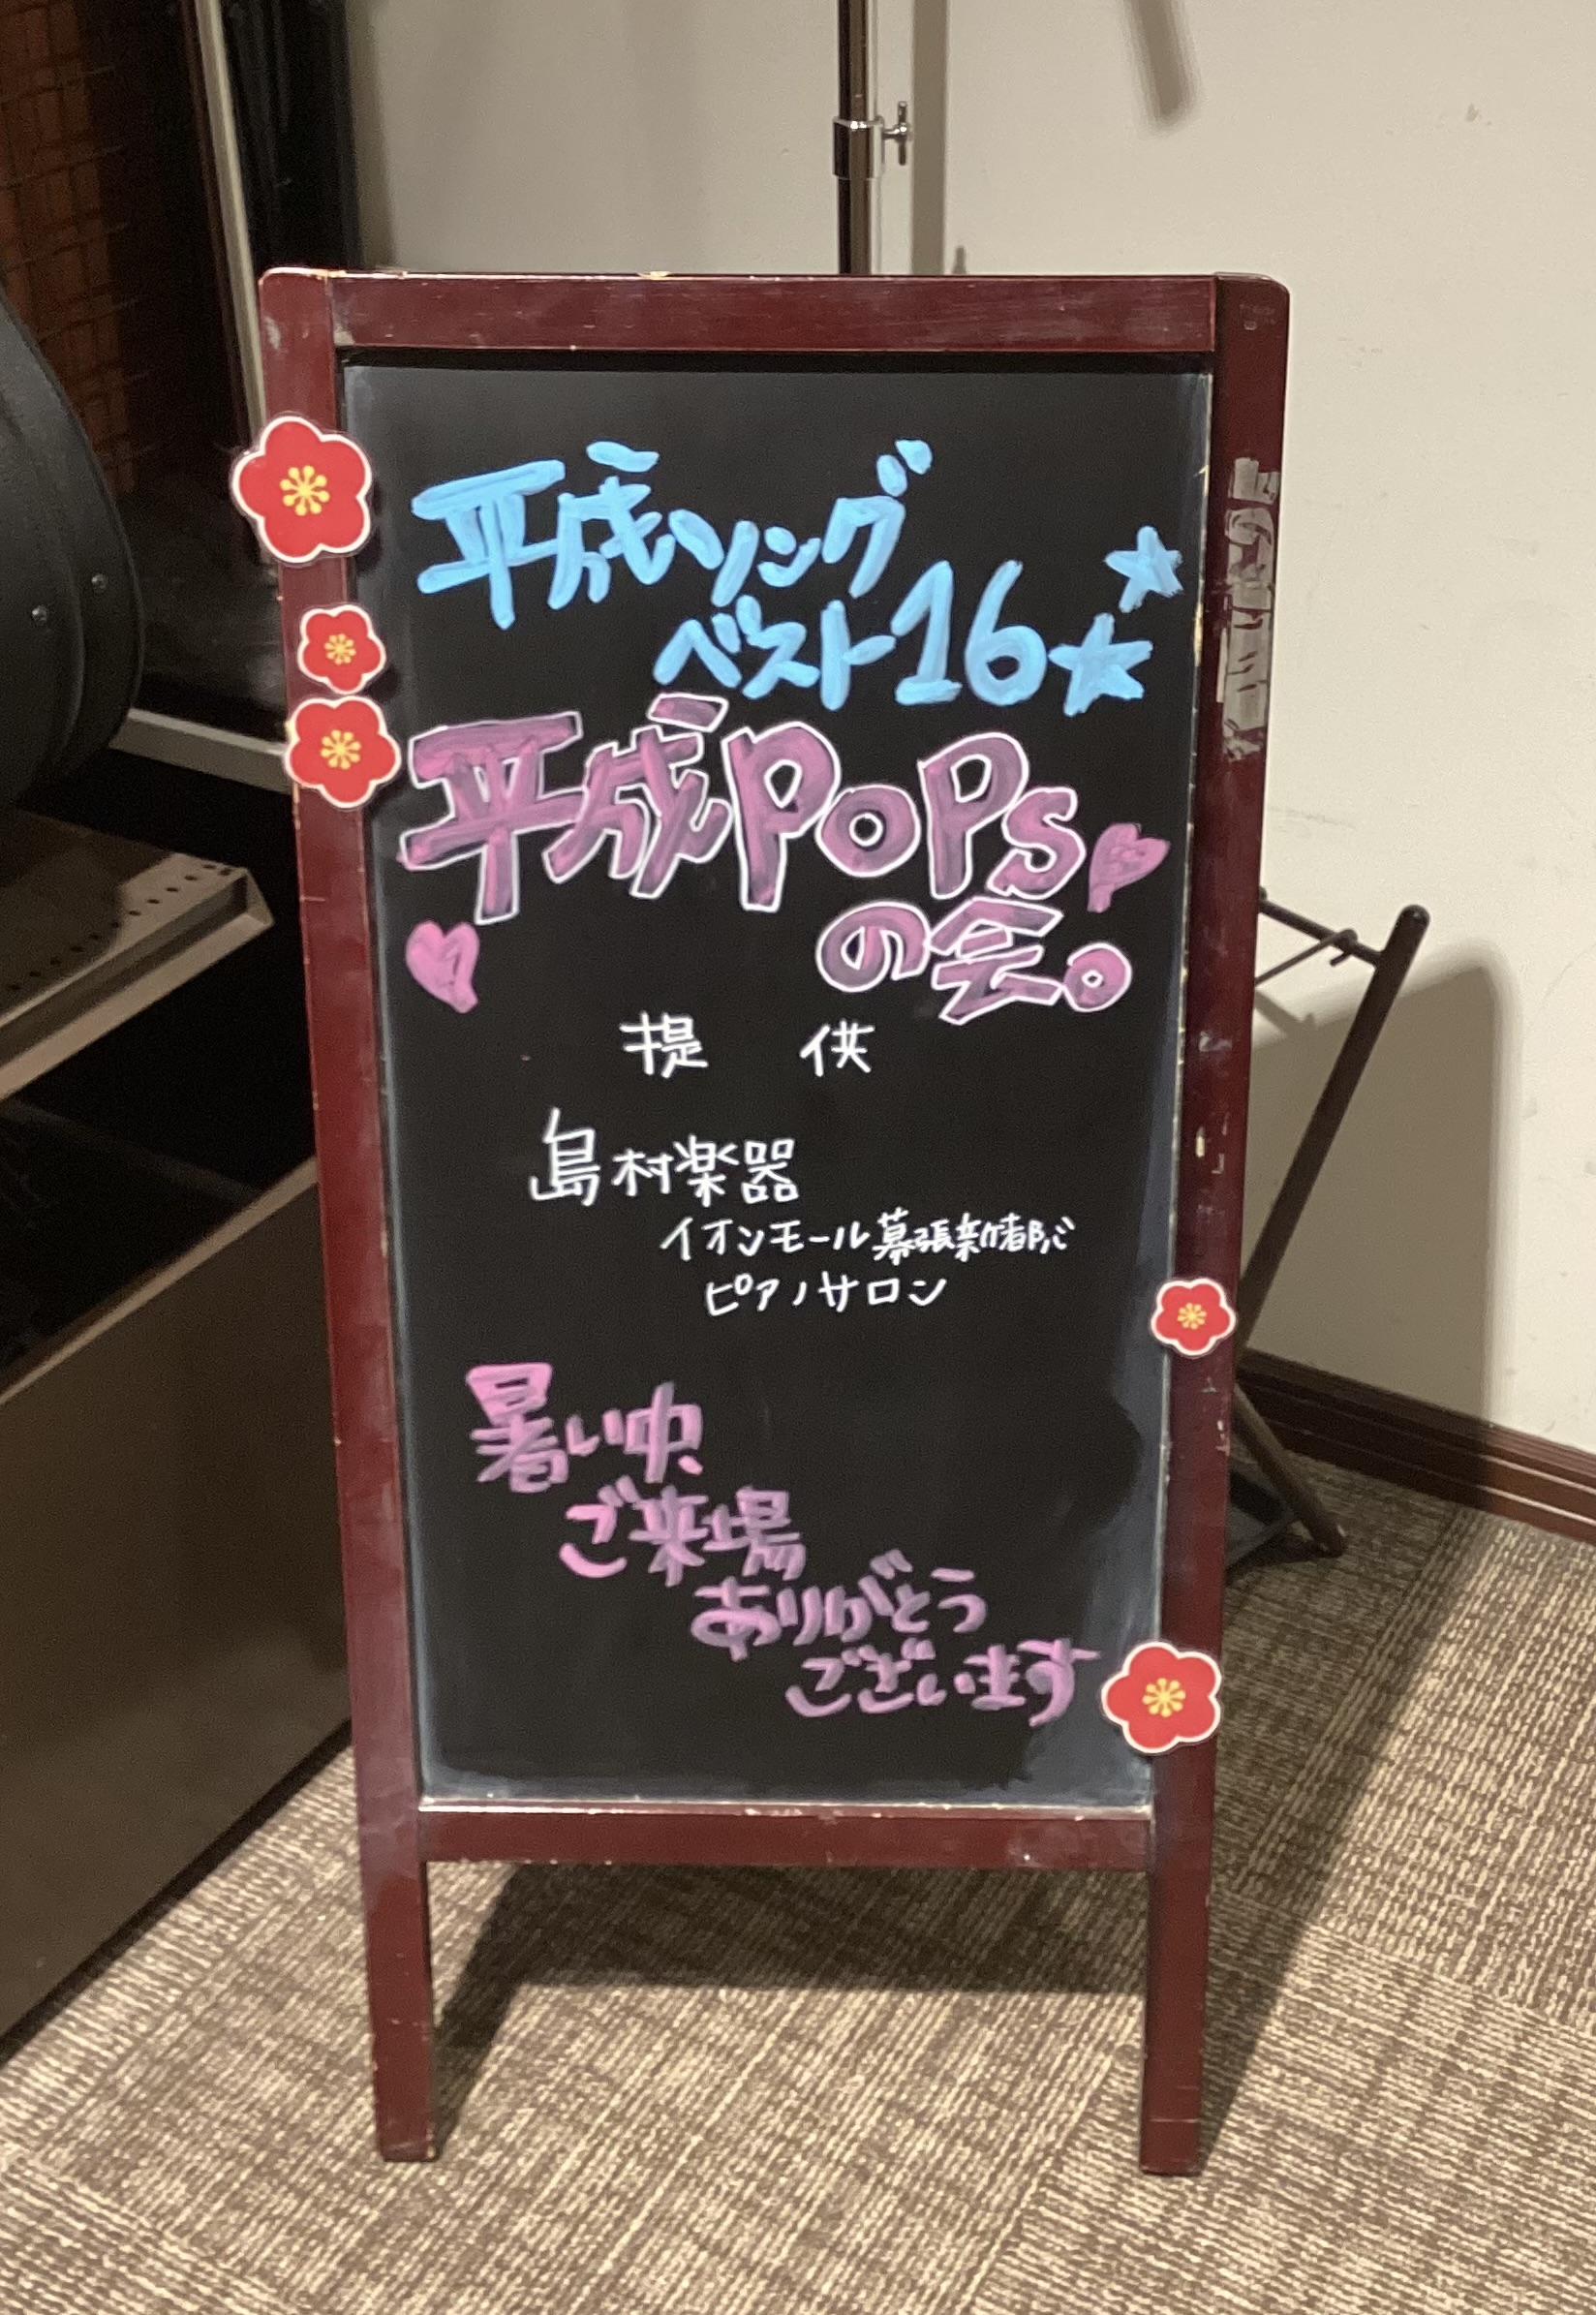 平成ソング
ベスト16★★
平成POPS
の会。
提 供
島村楽器
イオンモール幕張新都心
ピアノサロン
暑い中、
ご来場
ありがとう
ございます